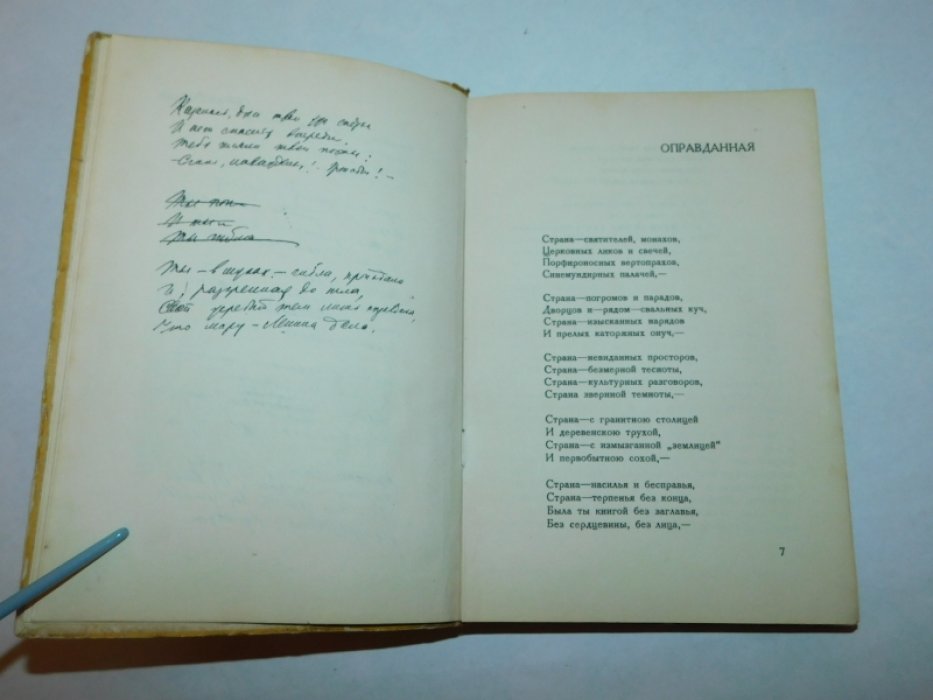 И нет спасенья впереди.
Тебя
Ты
И ты
Ты
Ты – в муках –
И, разгренная до тла,
Что
ОПРАВДАННАЯ
Страна—святителей, монахов,
Церковных ликов и свечей,
Порфироносных вертопрахов,
Синемундирных палачей,—
Страна—погромов и парадов,
Дворцов и—рядом—свальных куч,
Страна—изысканных нарядов
И прелых каторжных онуч,—
Страна—невиданных просторов,
Страна—безмерной тесноты,
Страна—культурных разговоров,
Страна звериной темноты,—
Страна—с гранитною столицей
И деревенскою трухой,
Страна—с измызганной „землицей"
И первобытною сохой,—
Страна—насилья и бесправья,
Страна—терпенья без конца,
Была ты книгой без заглавья,
Без сердцевины, без лица,—
7